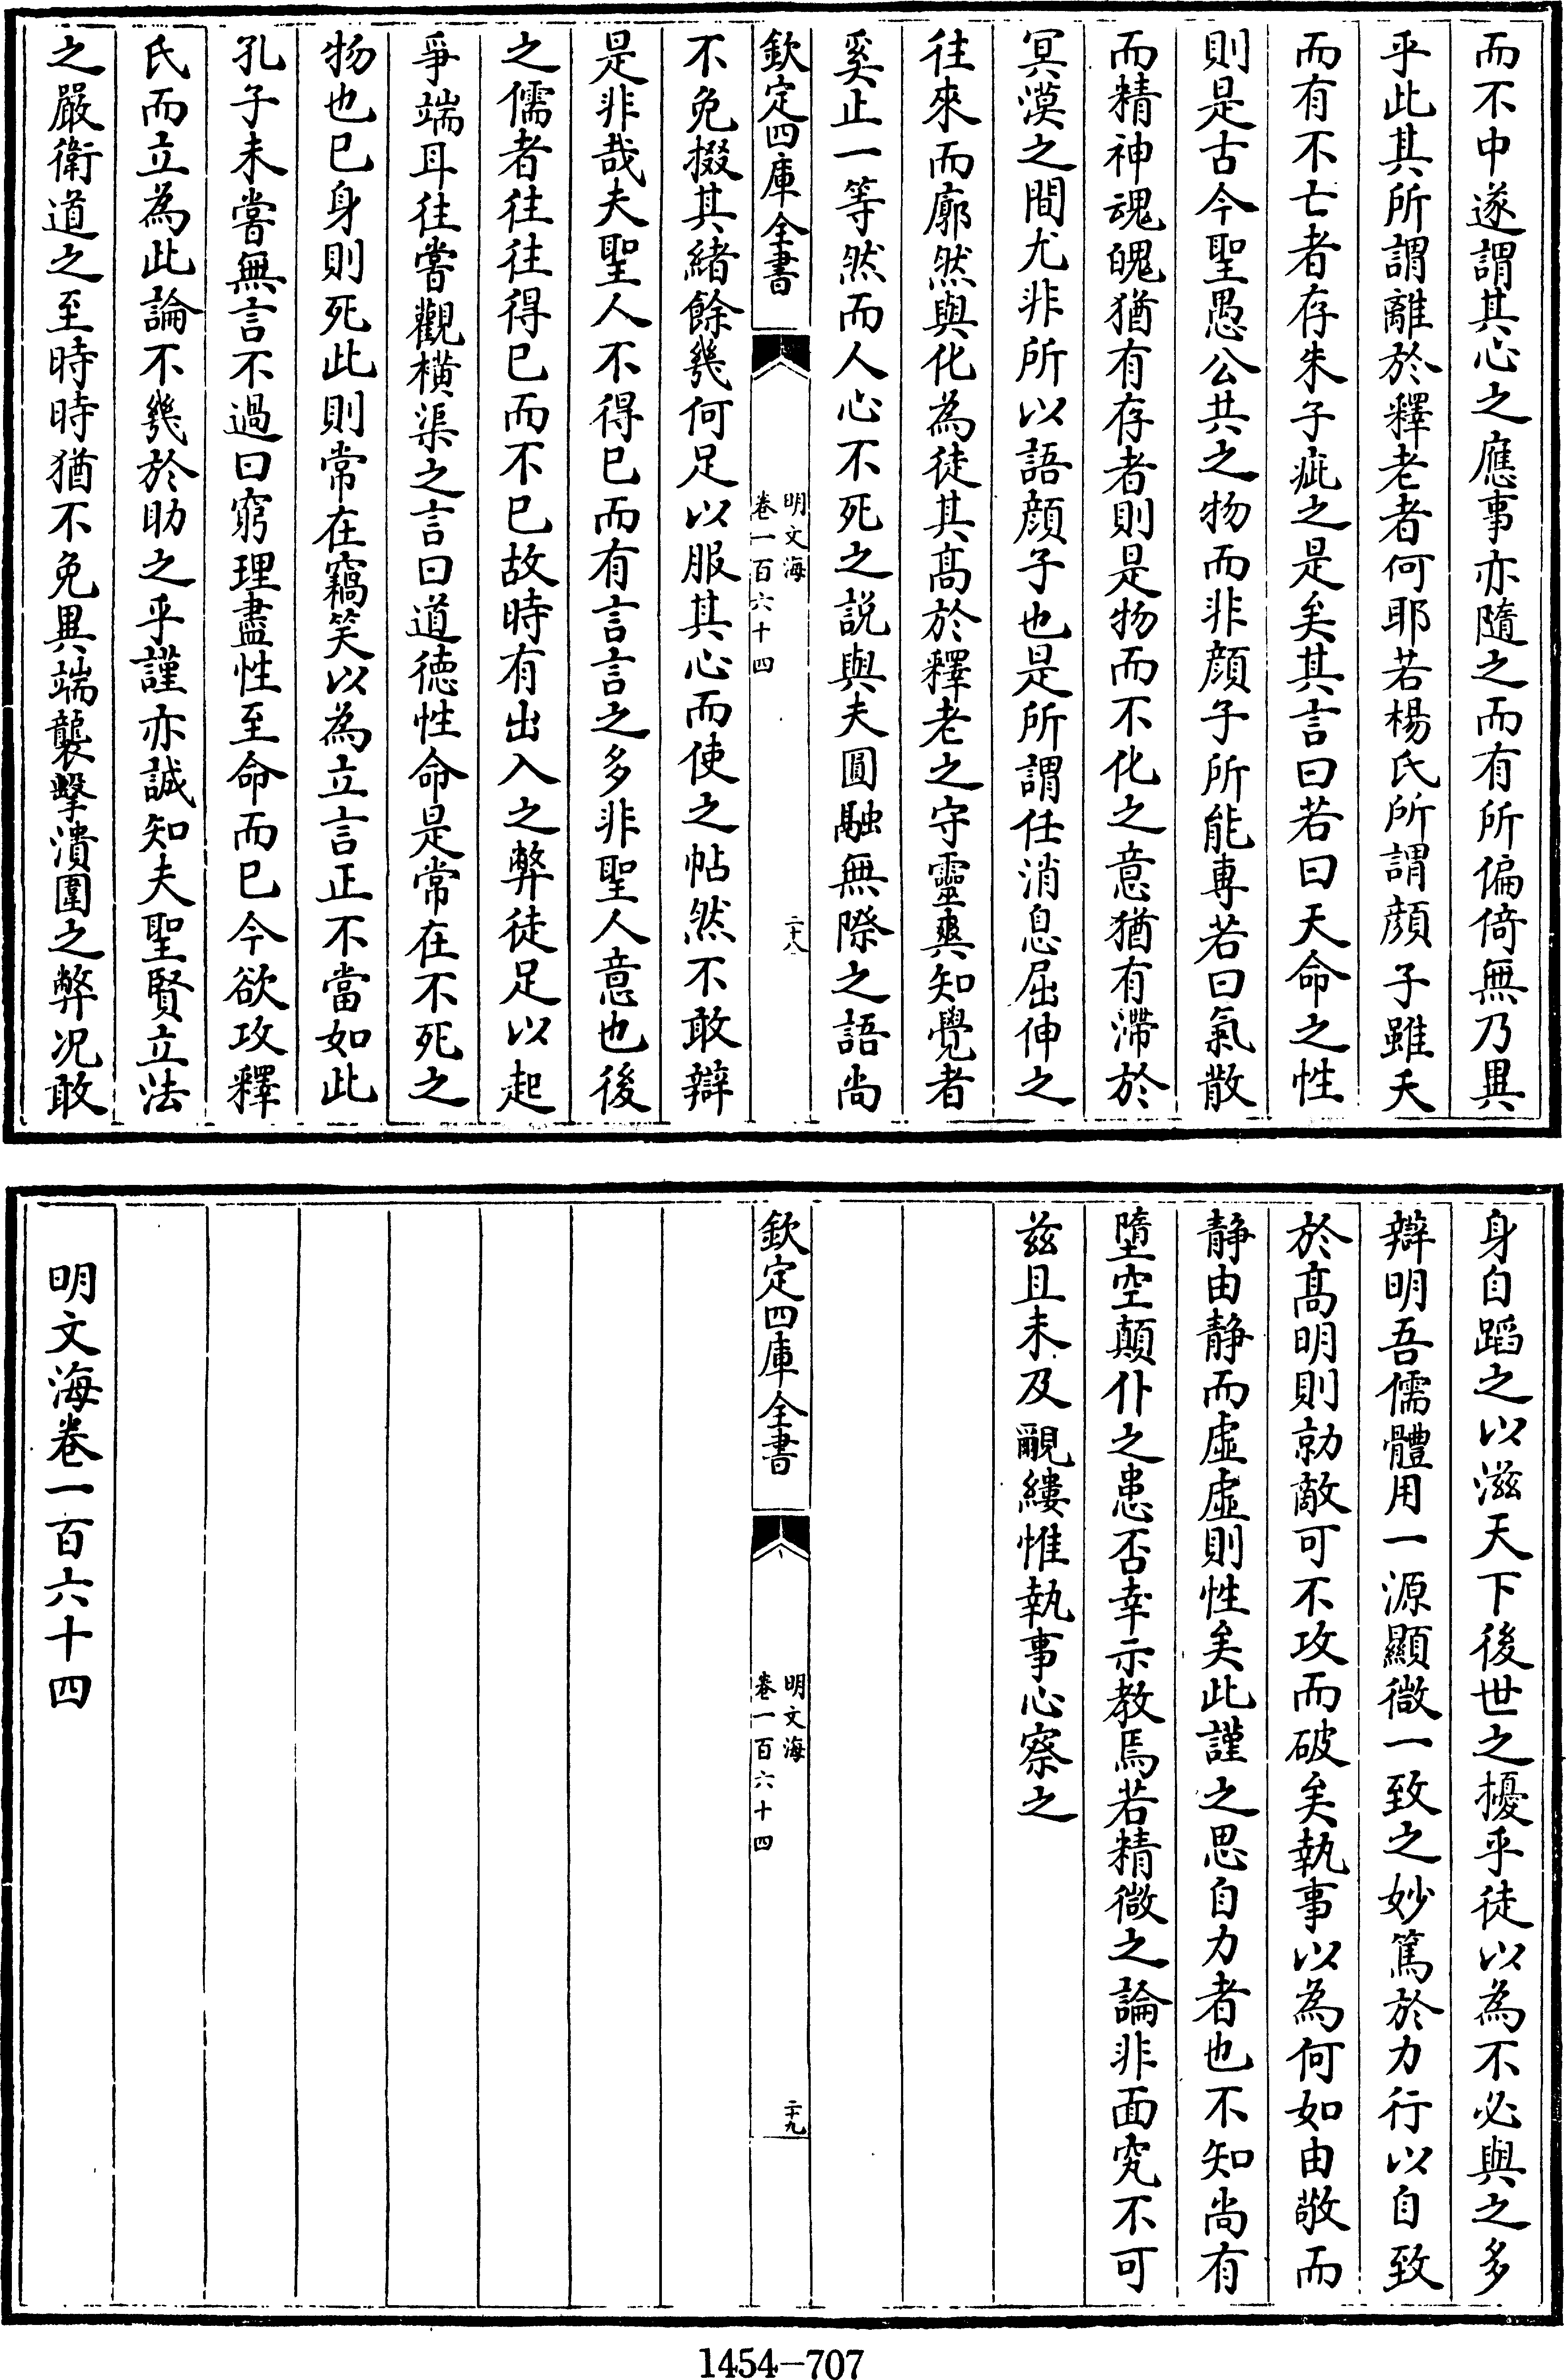 而不中遂謂其心之應事亦隨之而有所偏倚無乃異
乎此其所謂離於釋老者何耶若楊氏所謂顔子雖夭
而有不亡者存朱子疵之是矣其言曰若曰天命之性
則是古今聖愚公共之物而非顔子所能專若曰氣散
而精神魂魄猶有存者則是物而不化之意猶有滯於
冥漠之間尤非所以語顔子也是所謂任消息屈伸之
往來而廓然與化為徒其高於釋老之守靈爽知覺者
奚止一等然而人心不死之説與夫圓融無際之語尚
欽定四庫全書
明文海
卷一百六十四
二十八
不免掇其緒餘幾何足以服其心而使之帖然不敢辯
是非哉夫聖人不得已而有言言之多非聖人意也後
之儒者往往得已而不已故時有出入之弊徒足以起
爭端耳往嘗觀横渠之言曰道德性命是常在不死之
物也已身則死此則常在竊笑以為立言正不當如此
孔子未嘗無言不過曰窮理盡性至命而已今欲攻釋
氏而立為此論不幾於助之乎謹亦誠知夫聖賢立法
之嚴衛道之至時時猶不免異端襲擊潰圍之弊况敢
身自蹈之以滋天下後世之擾乎徒以為不必與之多
辯明吾儒體用一源顯微一致之妙篤於力行以自致
於高明則勍敵可不攻而破矣執事以為何如由敬而
静由静而虚虚則性矣此謹之思自力者也不知尚有
墮空顛仆之患否幸示教焉若精微之論非面究不可
兹且未及覼縷惟執事心察之
欽定四庫全書
明文海
卷一百六十四
二十九
明文海卷一百六十四
1454—707